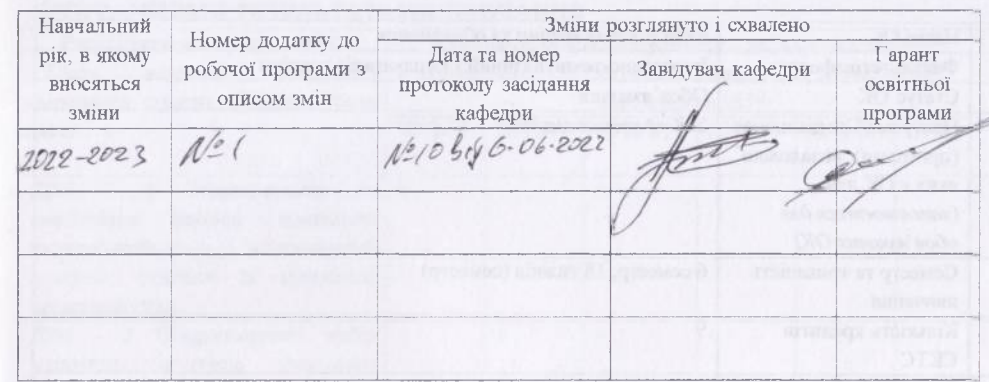 Навчальний
рік, в якому
вносяться
зміни
Номер додатку до
робочої програми з
описом змін
Зміни розглянуто і схвалено
Дата та номер
протоколу засідання
кафедри
Завідувач кафедри
Гарант
освітньої
програми
2022-2023 №1 №10 від 6-06-2022